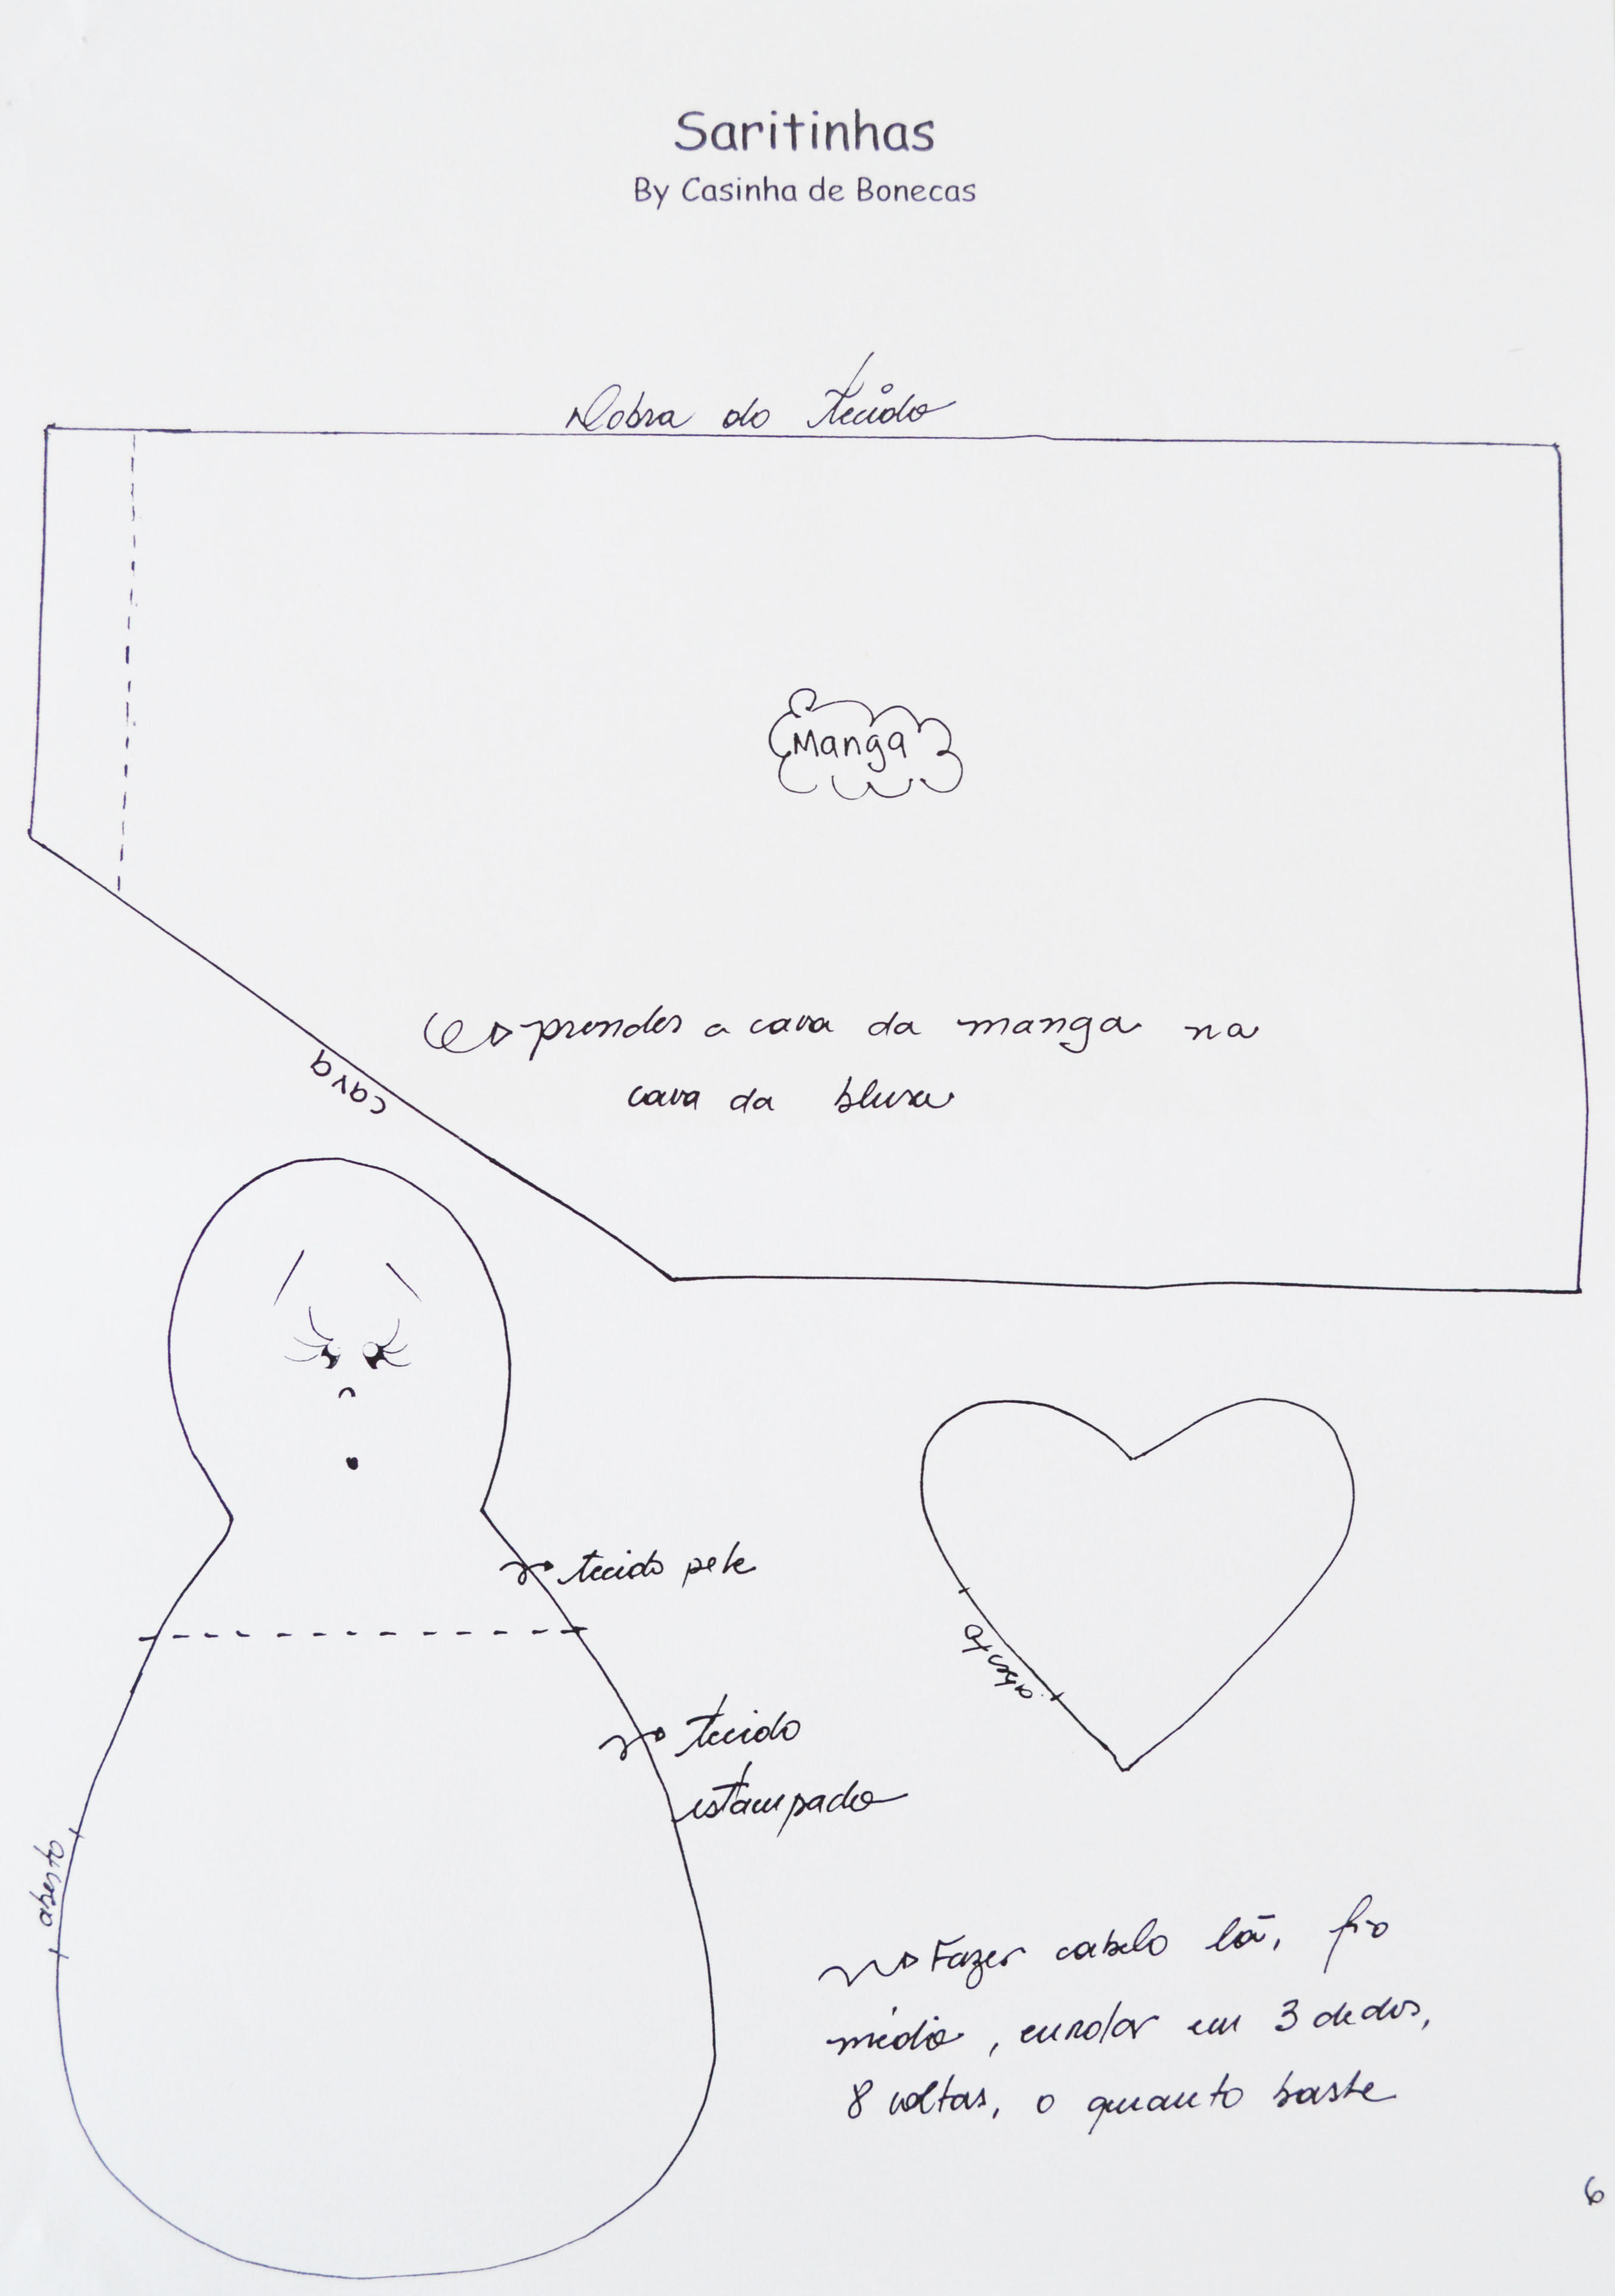 Saritinhas
By Casinha de Bonecas
Dobra do tecido
Manga
prender a cava da manga na
cava da blusa
cava
tecido pele
aberto
tecido
estampado
aberto
Fazer cabelo lã, fio
médio, enrolar em 3 dedos,
8 voltas, o quanto baste
6